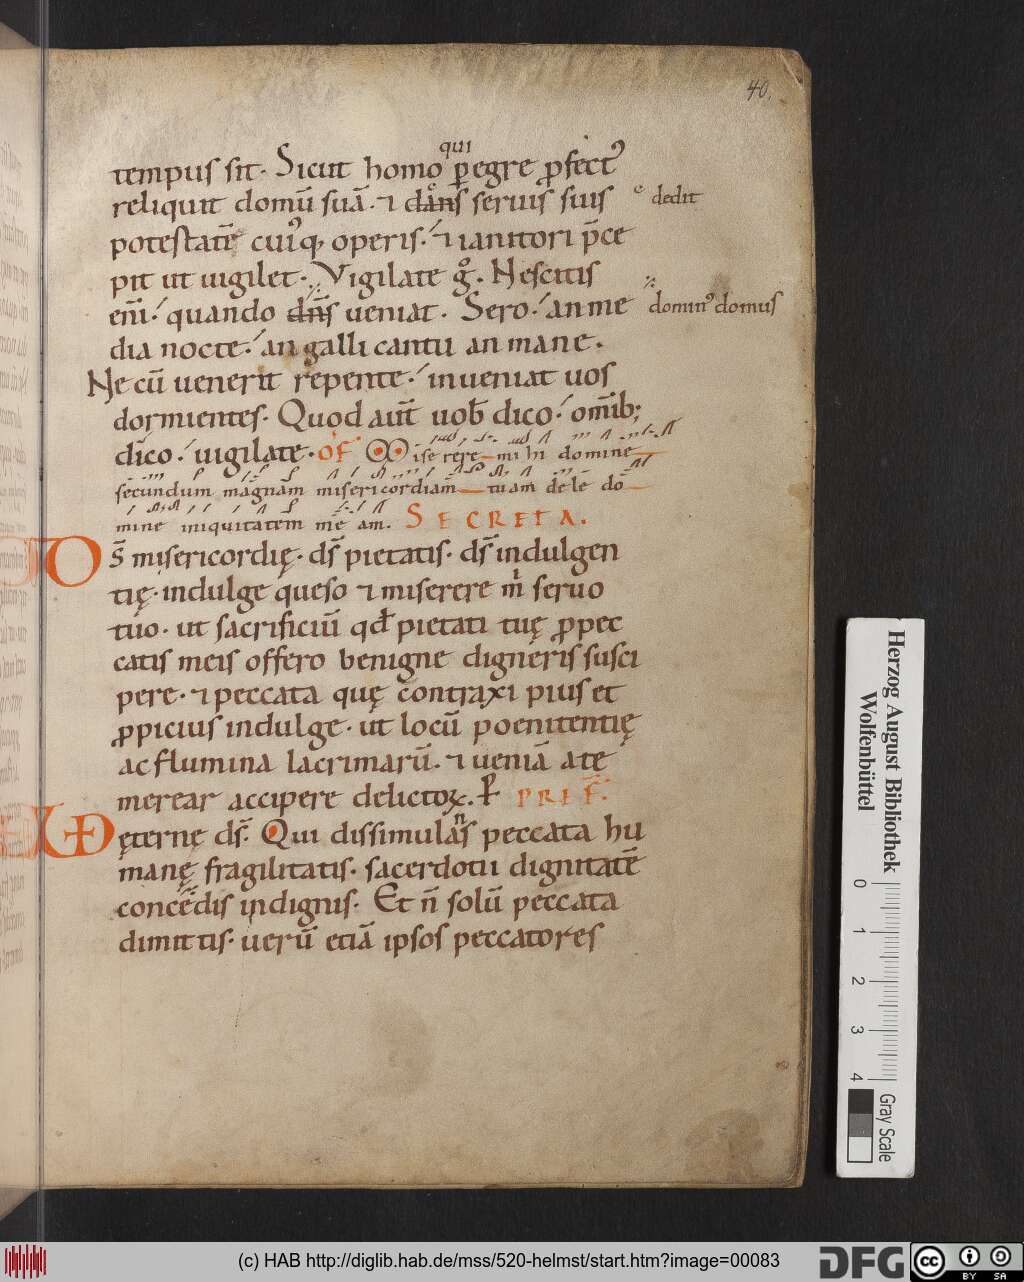 40.
qui
tempus sit. Sicut homo peregre ꝓfect᷒
reliquit domū suā. ⁊ dans seruis suis dedit
potestatē cui᷒q, operis. ⁊ ianitori p̄ce
pit ut uigilet. Vigilate gͦ. Nescitis
eni͞. quando dn̄s ueniat. Sero. an me domin᷒ domus
dia nocte. an galli cantu an mane.
Ne cū uenerit repente. inueniat uos
dormientes. Quod aut̄ uob̄ dico. om̄ib;
dico. uigilate. OF Miserere mihi domine
secundum magnam misericordiam tuam dele do
mine iniquitatem me am. SECRETA.
Ds̄ misericordię. ds̄ pietatis. ds̄ indulgen
tię. indulge queso ⁊ miserere m̍ seruo
tuo. ut sacrificiū qd̄ pietati tuę ꝓ pec
catis meis offero benigne digneris susci
pere. ⁊ peccata quę contraxi pius et
ꝓpicius indulge. ut locū poenitentię
ac flumina lacrimarū. ⁊ ueniā a te
merear accipere delictoꝝ. P PREF.
VD ęternę ds̄. Qui dissimulans peccata hu
manę fragilitatis. sacerdotii dignitatē
concedis indignis. Et n̄ solū peccata
dimittis. uerū etiā ipsos peccatores
Herzog August Bibliothek
Wolfenbüttel
0 1 2 3 4
Gray Scale
(c) HAB http://diglib.hab.de/mss/520-helmst/start.htm?image=00083
DFG
cc BY SA